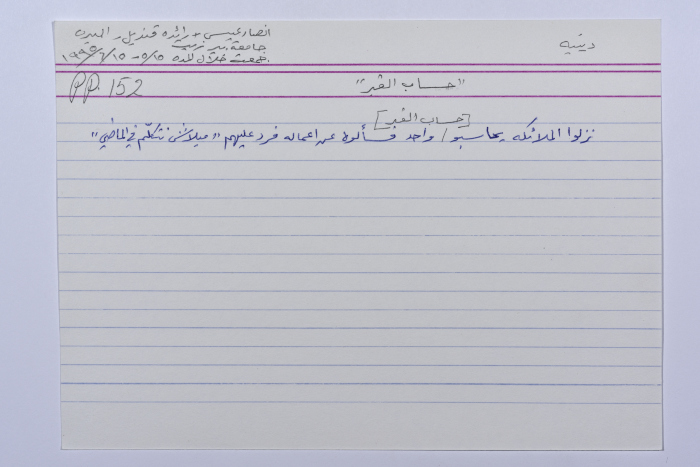 انصار عيسى + رائده قنديل، البيره
دينيه
جامعة بير زيت
جمعت خلال المدة ٥/١٥ - ١٩٩٥/٦/١٥
PP. 152
"حساب القبر"
[حساب القبر]
نزلوا الملائكه يحاسبو / واحد فسألوه عن اعماله فرد عليهم "مبلاش نتكلم في الماضي"